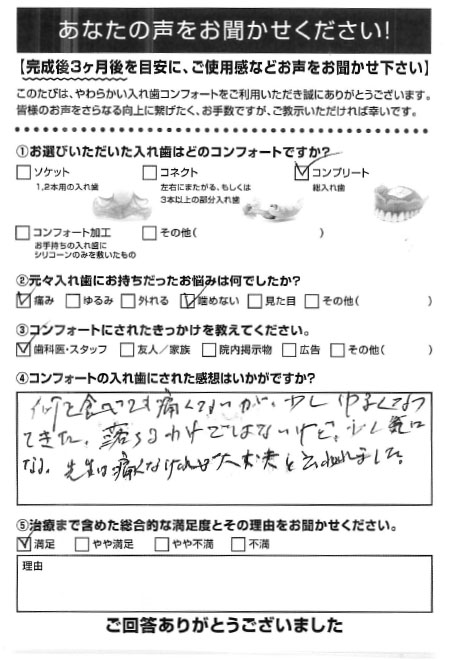 あなたの声をお聞かせください!
【完成後3ヶ月後を目安に、ご使用感などお声をお聞かせ下さい】
このたびは、やわらかい入れ歯コンフォートをご利用いただき誠にありがとうございます。
皆様のお声をさらなる向上に繋げたく、お手数ですが、ご教示いただければ幸いです。
①お選びいただいた入れ歯はどのコンフォートですか?
ソケット
1,2本用の入れ歯
コネクト
左右にまたがる、もしくは
3本以上の部分入れ歯
コンプリート
総入れ歯
コンフォート加工
お手持ちの入れ歯に
シリコーンのみを敷いたもの
その他( )
②元々入れ歯にお持ちだったお悩みは何でしたか?
痛み ゆるみ 外れる 噛めない 見た目 その他( )
③コンフォートにされたきっかけを教えてください。
歯科医・スタッフ 友人/家族 院内掲示物 広告 その他( )
④コンフォートの入れ歯にされた感想はいかがですか?
何を食べても痛くないが、少しゆるくなっ
てきた。落ちるわけではないけど、少し気に
なる。先生は痛くなければ大丈夫と云われました。
⑤治療まで含めた総合的な満足度とその理由をお聞かせください。
満足 やや満足 やや不満 不満
理由
ご回答ありがとうございました